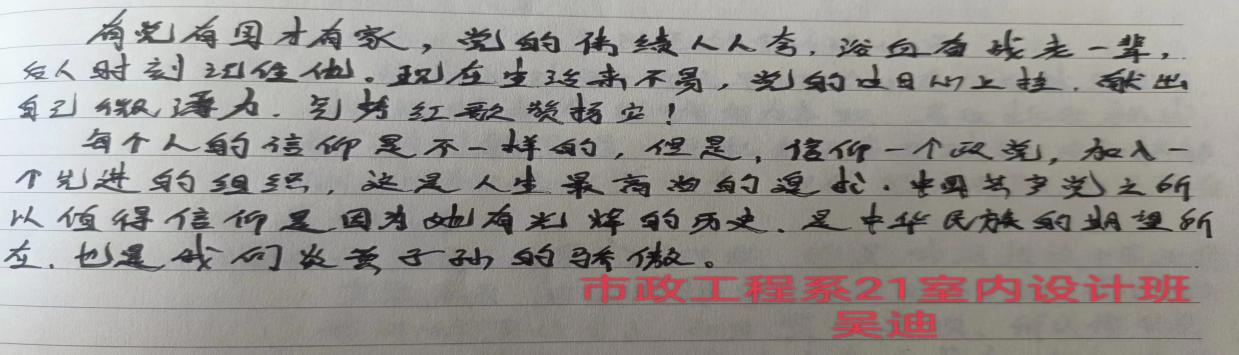 有党有国才有家，党的伟绩人人夸．浴血奋战老一辈，
后人时刻记住他。现在生活来不易，党的过日心上挂．献出
自己微薄力．完好红歌赞扬它！
每个人的信仰是不一样的，但是，信仰一个政党，加入一
个先进的组织，这是人生最高尚的追求．中国共产党之所
以值得信仰是因为她有光辉的历史．是中华民族的期望所
在．也是我们炎黄子孙的骄傲。
市政工程系21室内设计班
吴迪